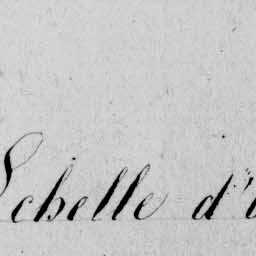 Echelle d'